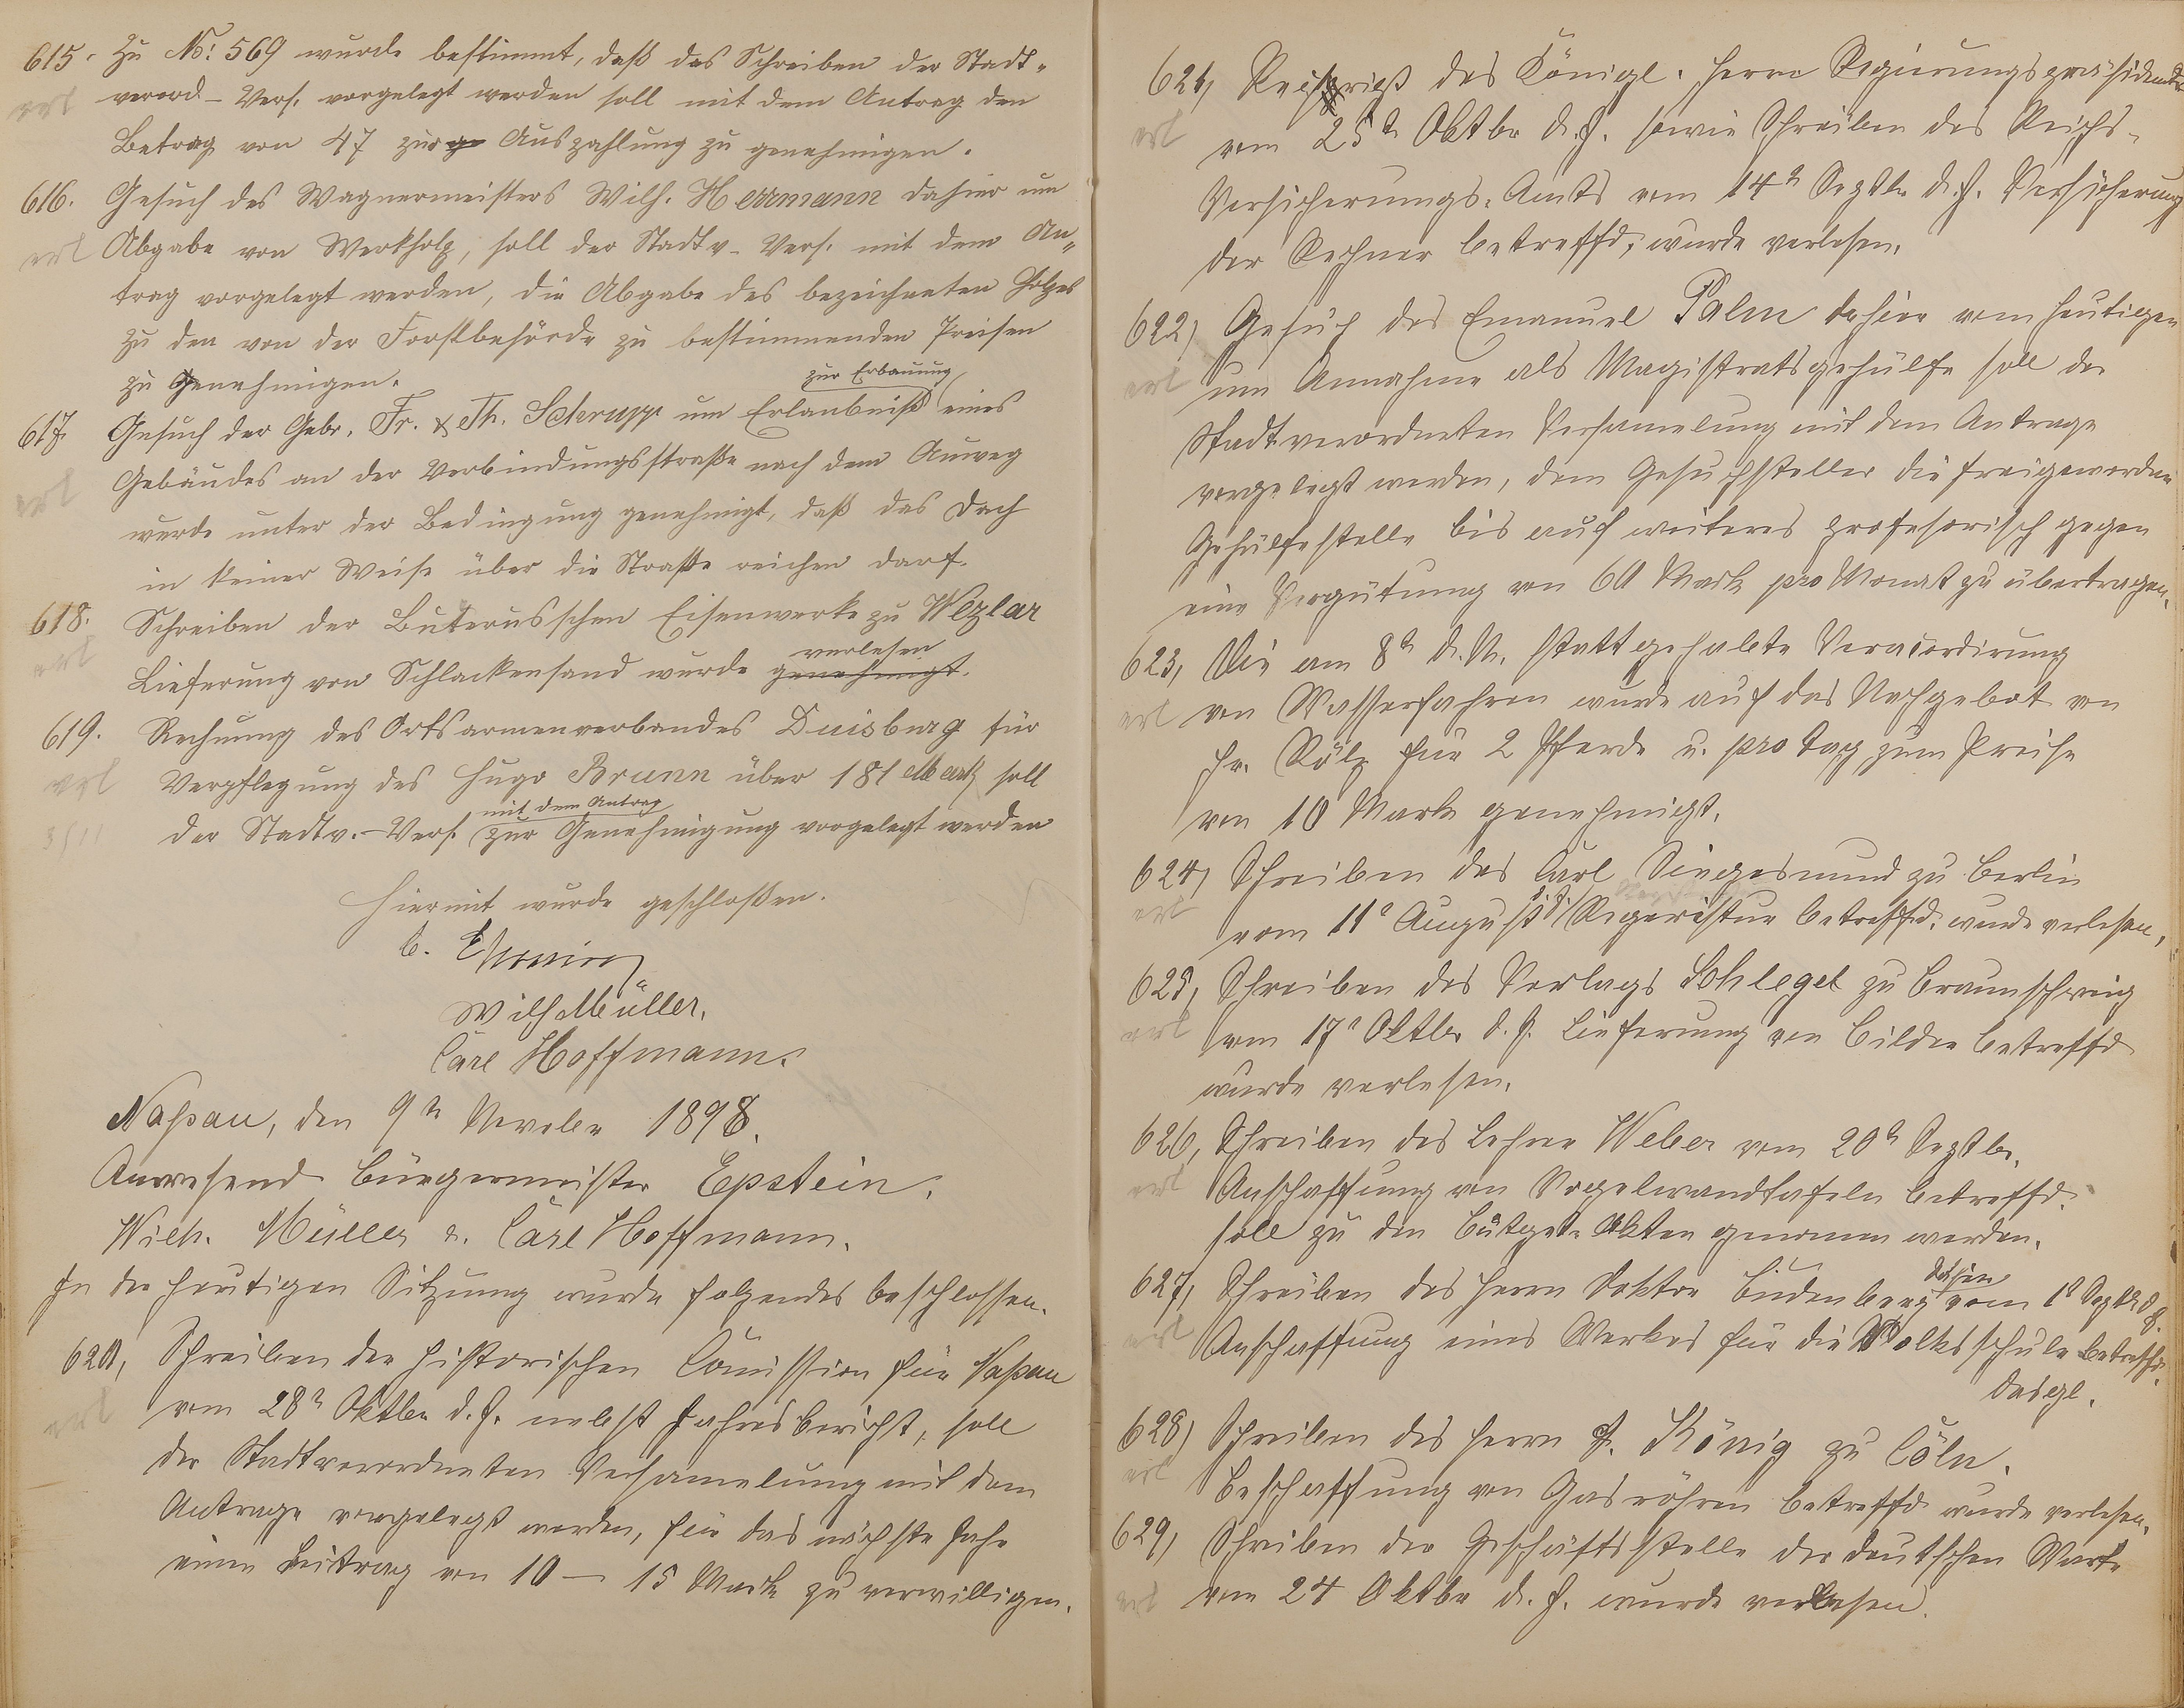 615. Zu No: 569 wurde bestimmt, daß das Schreiben der Stadt-
erl verord- Vers. vorgelegt werden soll mit dem Antrag den
Betrag von 47 zur ge Auszahlung zu genehmigen.
616. Gesuch des Wagnermeisters Wilh. Herrmann dahier um
erl Abgabe von Werkholz, soll der Stadtv- Vers. mit dem An-
trag vorgelegt werden, die Abgabe des bezeichneten Holzes
zu den von der Forstbehörde zu bestimmenden Preisen
zu genehmigen.
zur Erbauung
617. Gesuch der Gebr. Fr. & Th. Schrupp um Erlaubniß eines
Gebäudes an der Verbindungsstraße nach dem Auweg
erl wurde unter der Bedingung genehmigt, daß das Dach
in keiner Weise über die Straße reichen darf.
618. Schreiben der Buderusschen Eisenwerke zu Wezlar
verlesen
erl Lieferung von Schlackensand wurde genehmigt.
619. Rechnung des Ortsarmenverbandes Duisburg für
erl Verpflegung des Hugo Brunn über 181 Mark soll
mit dem Antrag
der Stadtv.-Vers. zur Genehmigung vorgelegt werden
Hiermit wurde geschloßen.
Wilh Müller.
Carl Hoffmann.
Naßau, den 9n Novebr 1898.
Anwesend Bürgermeister Epstein.
Wilh. Müller u. Carl Hoffmann.
In der heutigen Sitzung wurde folgendes beschlossen.
620, Schreiben der historischen Comission für Naßau
erl vom 28n Oktbr d. J. nebst Jahresbericht, soll
der Stadtverordneten Versamelung mit dem
Antrage vorgelegt werden, für das nächste Jahr
einen Beitrag von 10 – 15 Mark zu verwilligen.
621, des Königl. Herrn Regierungspräsidenten
erl vom 25n Oktbr d. J. sowie Schreiben des Reichs-
Versicherungs-Amts vom 14n Septbr d. J. Versicherung
der Rechner betreffd, wurde verlesen.
622, Gesuch des Emanuel Palm dahier vom heutigen
erl um Annahme als Magistratsgehülfe soll der
Stadtverordneten Versamelung mit dem Antrage
vorgelegt werden, dem Gesuchsteller die freigewordene
Gehülfestelle bis auf weiteres profesorisch gegen
eine Vergütung von 60 Mark pro Monat zu übertragen.
623, Die am 8n d. M. stattgehabte Veracordirung
erl von Wasserfahren wurde auf das Nachgebot von
Hr. Rölz für 2 Pferde u. pro Tag zum Preise
von 10 Mark genehmigt.
624, Schreiben des Carl Siegesmund zu Berlin
d. J.
erl vom 11n August Regeristur betreffd. wurde verlesen,
625, Schreiben des Verlags Schlegel zu Braunschweig
erl vom 17n Oktbr d. J. Lieferung von Bilder betreffd
wurde verlesen.
626, Schreiben des Lehrer Weber vom 20n Septbr.
erl Anschaffung von Vogelwandtafeln betreffd.
soll zu den Bütget-Akten genomen werden.
dahier
627, Schreiben des Herrn Doktor Budenberg vom 1n Septbr d. J.
erl Anschaffung eines Werkes für die Volksschule betreffd.
desgl.
628, Schreiben des Herrn J. König zu Cöln.
erl Beschaffung von Gasröhren betreffd wurde verlesen.
629, Schreiben der Geschäftsstelle der deutschen Warte
erl vom 24 Oktbr d. J. wurde verlesen.